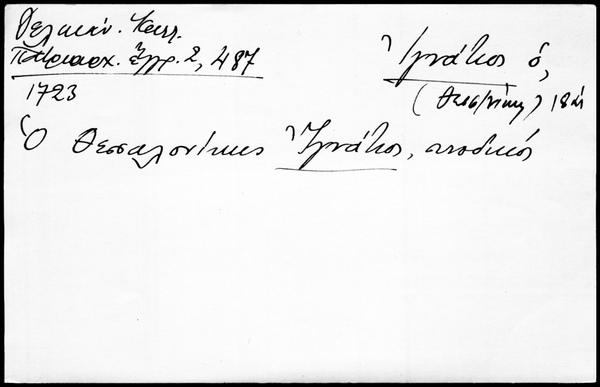 Δελικάν. Κωλ.
Πατριαρχ. Ἔγγρ. 2, 487
1723
Ἰγνάτιος ὁ,
(Θεσσ/νίκης) 18 αι
Ὁ Θεσσαλονίκης Ἰγνάτιος, συνοδικός